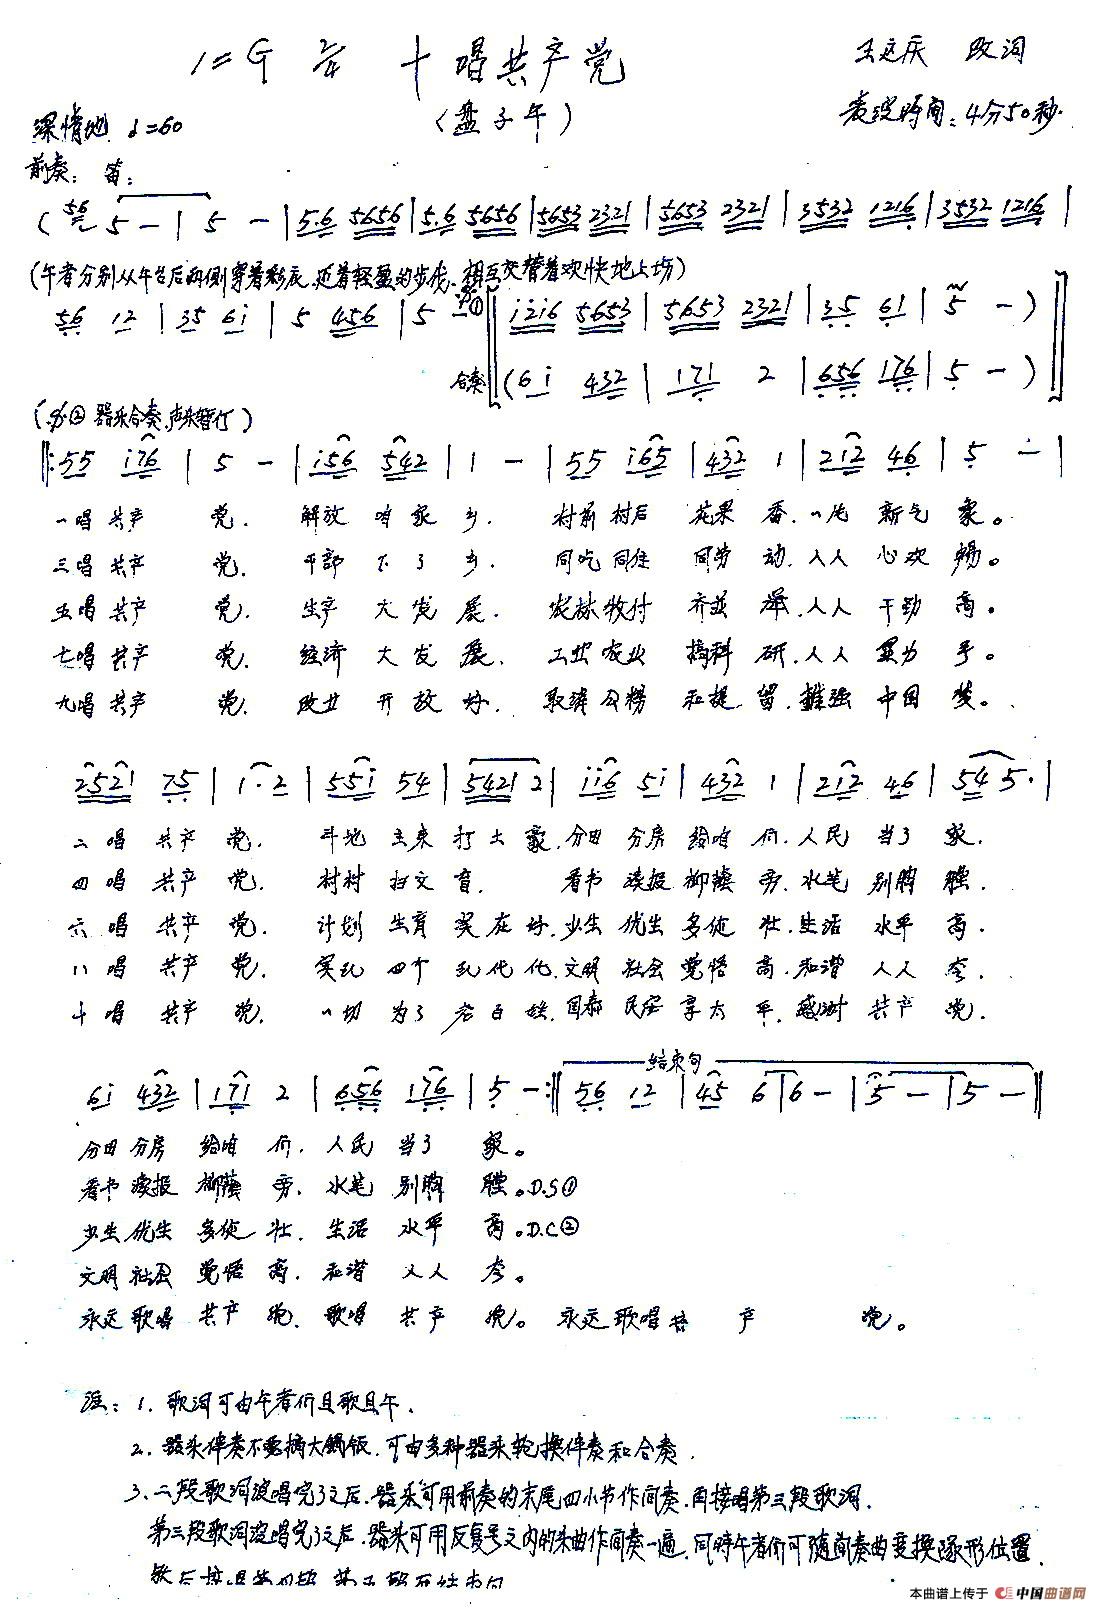 1=G 2/4 十唱共产党 王定庆 改词
深情地 ♩=60 (盘子午) 表演时间:4分50秒.
前奏: 笛:
(56 5 - | 5 - | 5.6 5656 | 5.6 5656 | 5653 2321 | 5653 2321 | 3532 1216 | 3532 1216 |
(午者分别从午台后两侧穿着彩衣,迈着轻盈的步伐,相互交替着欢快地上场)
56 12 | 35 6i | 5 456 | 5 - ① i2i6 5653 | 5653 2321 | 35 61 | 5 - )
合奏 (6i 432 | 171 2 | 656 176 | 5 - )
(② 器乐合奏,声乐暂停)
‖: 55 i76 | 5 - | i56 542 | 1 - | 55 i65 | 432 1 | 212 46 | 5 - |
一唱共产 党. 解放 咱 家 乡. 村前 村后 花果 香.一片 新气 象。
三唱共产 党. 干部 下 了 乡. 同吃 同住 同劳 动.人人 心欢 畅。
五唱共产 党. 生产 大 发 展. 农林牧付 齐並 举.人人 干劲 高。
七唱共产 党. 经济 大 发 展. 工业 农业 搞科 研.人人 显力 手。
九唱共产 党. 改 开 放 好. 取消 公粮 和提 留. 中国 梦。
2521 75 | 1. 2 | 55i 54 | 5421 2 | ii6 5i | 432 1 | 212 46 | 54 5. |
二 唱 共产 党. 斗地 主来 打 土 豪.分田 分房 给咱 们.人民 当了 家.
四 唱 共产 党. 村村 扫文 盲. 看书 读报 柳荫 旁.水笔 别胸 膛.
六 唱 共产 党. 计划 生育 实 在 好.少生 优生 多 壮.生活 水平 高.
八 唱 共产 党. 实现 四个 现 代 化.文明 社会 觉悟 高.和谐 人人 夸.
十 唱 共产 党. 一切 为了 老 百 姓.国泰 民安 享太 平.感谢 共产 党.
结束句
6i 432 | 171 2 | 656 176 | 5 - :‖ 56 12 | 45 6 | 6 - | 5 - | 5 - ‖
分田 分房 给咱 们.人民 当了 家。
看书 读报 柳荫 旁.水笔 别胸 膛。D.S①
少生 优生 多 壮.生活 水平 高。D.C②
文明 社会 觉悟 高.和谐 人人 夸。
永远 歌唱 共产 党.歌唱 共产 党。 永远 歌唱 共 产 党。
注: 1.歌词可由午者们且歌且午.
2.器乐伴奏不要搞大锅饭.可由多种器乐轮换伴奏和合奏.
3.二段歌词演唱完了之后.器乐可用前奏的末尾四小节作间奏.再接唱第三段歌词.
第三段歌词演唱完了之后.器乐可用反复号之内的乐曲作间奏一遍.同时午者们可随间奏曲变换队形位置.
本曲谱上传于 中国曲谱网